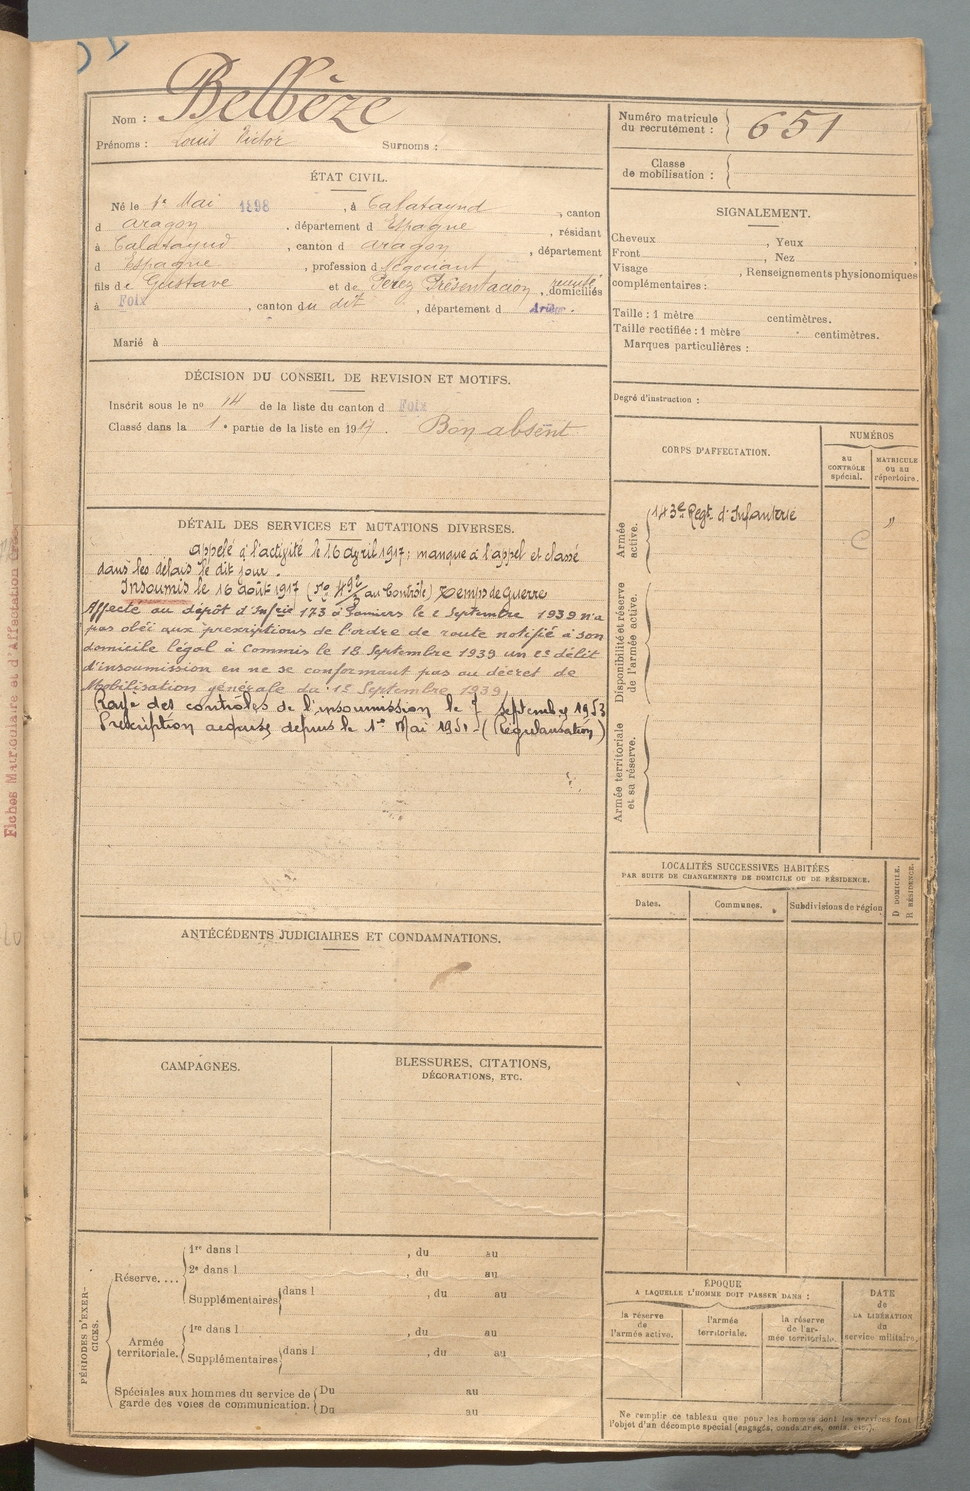 Belbèze
Nom :
Prénoms : Louis Victor Surnoms :
Numéro matricule
du recrutement : 651
Classe
de mobilisation :
ÉTAT CIVIL.
Né le 1er Mai 1898, à Calatayud, canton
d aragon, département d Espagne, résidant
à Calatayud, canton d aragon, département
d Espagne, profession d négociant
fils de Gustave et de Perez Présentacion, domiciliés
à Foix, canton du dit, département d Ariège.
Marié à
SIGNALEMENT.
Cheveux , Yeux ,
Front , Nez ,
Visage , Renseignements physionomiques
complémentaires :
Taille : 1 mètre centimètres.
Taille rectifiée : 1 mètre centimètres.
Marques particulières :
Degré d'instruction :
DÉCISION DU CONSEIL DE REVISION ET MOTIFS.
Inscrit sous le no 14 de la liste du canton d Foix
Classé dans la 1e partie de la liste en 1917. Bon absent
DÉTAIL DES SERVICES ET MUTATIONS DIVERSES.
appelé à l'activité le 16 avril 1917; manque à l'appel et classé
dans les délais le dit jour.
Insoumis le 16 août 1917 (au Contrôle) Temps de Guerre
Affecté au dépôt d'Infrie 173 à Pamiers le 2 Septembre 1939 n'a
pas obéi aux prescriptions de l'ordre de route notifié à son
domicile légal à Commis le 18 Septembre 1939 un 2e délit
d'insoumission en ne se conformant pas au décret de
Mobilisation générale du 1er Septembre 1939
Rayé des contrôles de l'insoumission le 7 septembre 1953
Prescription acquise depuis le 1er Mai 1951 - (Régularisation)
CORPS D'AFFECTATION.
NUMÉROS
au
CONTRÔLE
spécial.
MATRICULE
ou au
répertoire.
Armée
active.
143e Regt d'Infanterie "
Disponibilité et réserve
de l'armée active.
Armée territoriale
et sa réserve.
LOCALITÉS SUCCESSIVES HABITÉES
PAR SUITE DE CHANGEMENTS DE DOMICILE OU DE RÉSIDENCE.
Dates.
Communes.
Subdivisions de région
D DOMICILE.
R RÉSIDENCE.
ANTÉCÉDENTS JUDICIAIRES ET CONDAMNATIONS.
CAMPAGNES.
BLESSURES, CITATIONS,
DÉCORATIONS, ETC.
PÉRIODES D'EXER-
CICES.
Réserve....
1re dans l , du au
2e dans l , du au
Supplémentaires dans l , du au
Armée
territoriale.
1re dans l , du au
Supplémentaires dans l , du au
Spéciales aux hommes du service de
garde des voies de communication.
Du au
Du au
ÉPOQUE
A LAQUELLE L'HOMME DOIT PASSER DANS :
la réserve
de
l'armée active.
l'armée
territoriale.
la réserve
de l'ar-
mée territoriale.
DATE
de
LA LIBÉRATION
du
service militaire.
Ne remplir ce tableau que pour les hommes dont les services font
l'objet d'un décompte spécial (engagés, condamnés, omis, etc.).